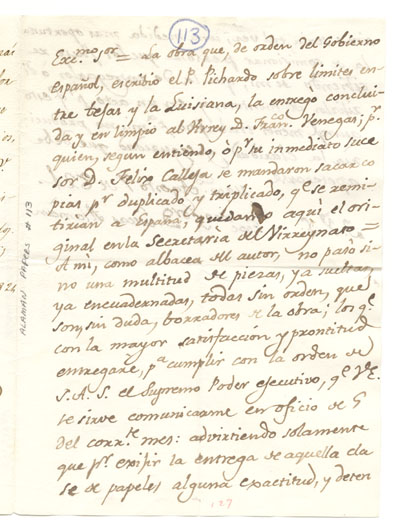 113
Exc.mo Sor = La obra que, de orden del Gobierno
Español, escribio el P. Pichardo sobre limites en-
tre Tejas y la Luisiana, la entregò conclui-
da y en limpio al Virrey D. Fran.co Venegas; p.r
quien, segun entiendo, ò p.r su inmediato suce
sor D. Felix Calleja se mandaron sacar co
pias p.r duplicado y triplicado, q.e se remi-
tirian a España, quedando aqui el ori-
ginal en la Secretaría del Virreynato =
A mi, como albacea del autor, no pasò si-
no una multitud de piezas, ya sueltas,
ya encuadernadas, todas sin orden, que
son, sin duda, borradores de la obra; los q.e
con la mayor satisfaccion y prontitud
entregarè, p.a cumplir con la orden de
S.A.S. el Supremo Poder executivo, q.e V.E.
se sirve comunicarme en oficio de 5
del corr.te mes: advirtiendo solamente
que p.r exijir la entrega de aquella cla
se de papeles alguna exactitud, y deten
27
ALAMÁN PAPERS # 113